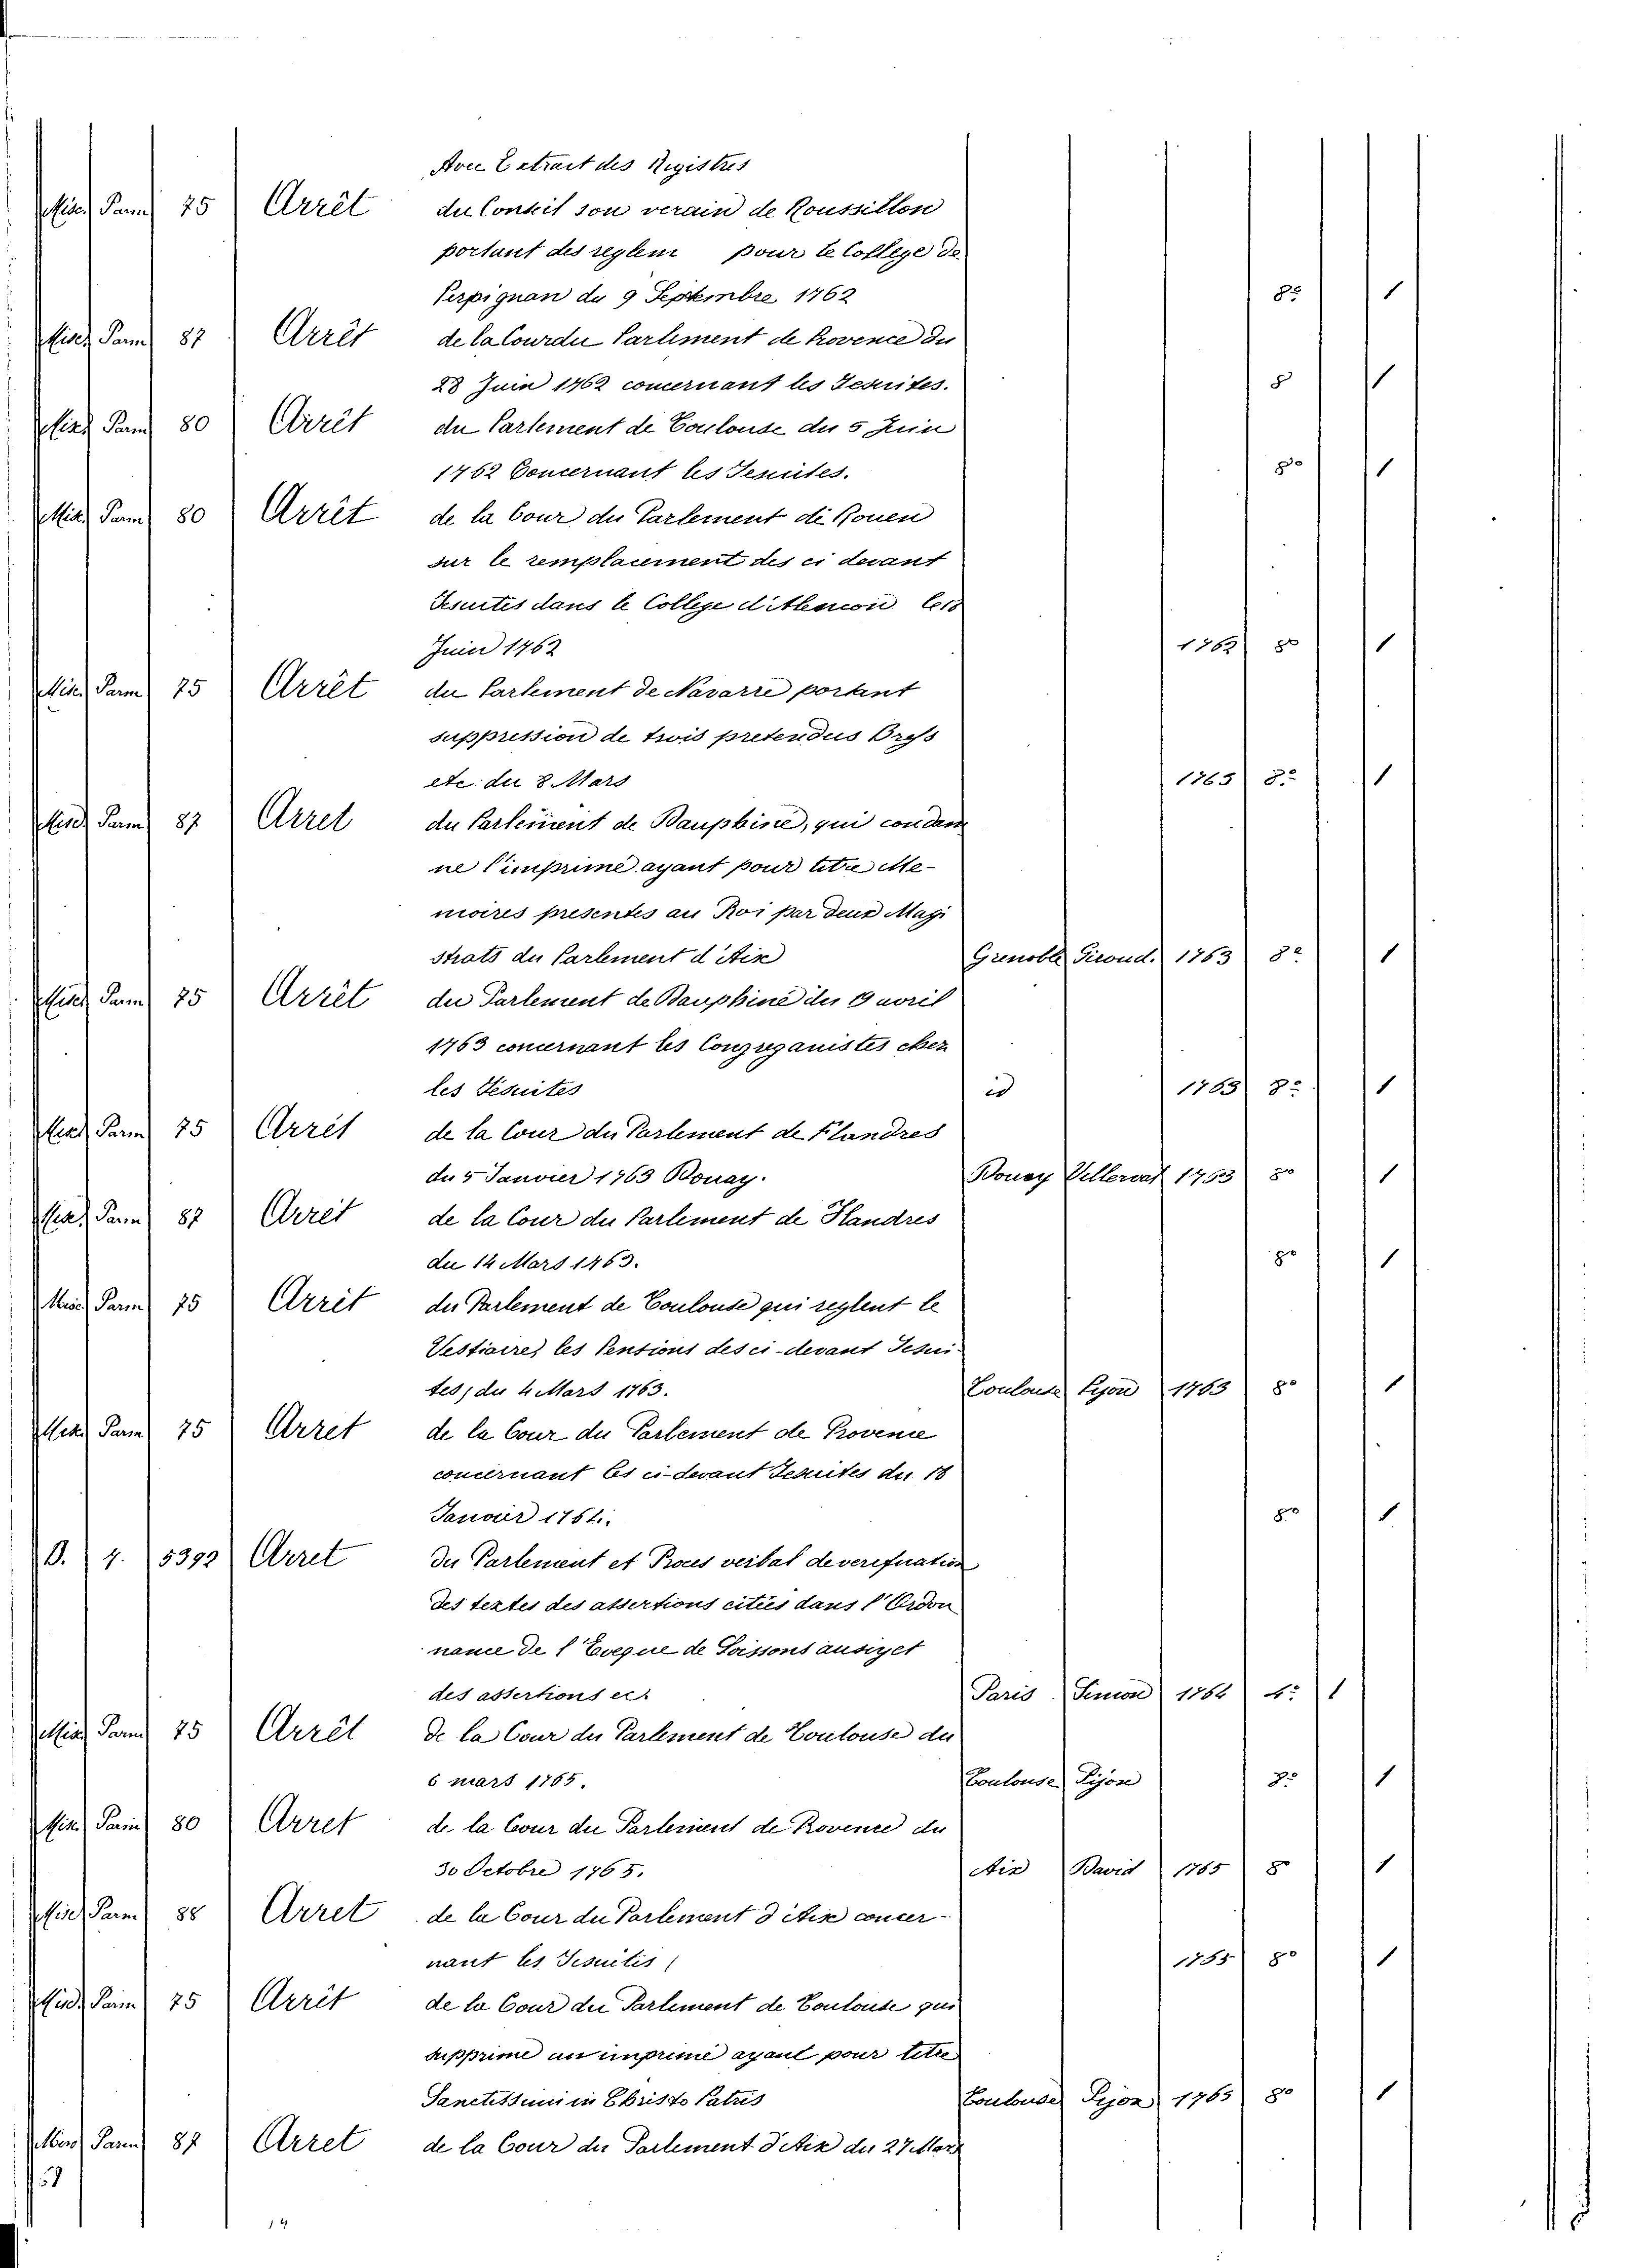 Avec Extrait des Registres
Misc. Parm 75 Arrêt du Conseil sou verain de Roussillon
portant des reglem pour le College de
Perpignan du 9 Septembre 1762 8° 1
Misc. Parm 87 Arrêt de la Cour du Parlement de Provence du
28 Juin 1762 concernant les Jesuites. 8 1
Misc. Parm 80 Arrêt du Parlement de Toulouse du 5 Juin
1762 Concernant les Jesuites. 8° 1
Misc. Parm 80 Arrêt de la Cour du Parlement de Rouen
sur le remplacement des ci devant
Jesuites dans le College
Juin 1762 1762 8° 1
Misc. Parm 75 Arrêt du Parlement de Navarre portant
suppression de trois pretendus Brefs
etc du 8 Mars 1765 8° 1
Misc. Parm 87 Arret du Parlement de Dauphiné, qui condam
ne l'imprimé ayant pour titre Me-
moires presentés au Roi par deux Magi
strats du Parlement d'Aix Grenoble Giroud. 1763 8° 1
Misc. Parm 75 Arrêt du Parlement de Dauphiné du avril
1763 concernant les Congreganistes chez
les Jesuites id 1763 8° 1
Misc. Parm 75 Arrêt de la Cour du Parlement de Flandres
du 5 Janvier 1763 Douay. Douay Villerval 1763 8° 1
Misc. Parm 87 Arrêt de la Cour du Parlement de Flandres
du 14 Mars 1763. 8° 1
Misc. Parm 75 Arrêt du Parlement de Toulouse qui reglent le
Vestiaire, les Pensions des ci-devant Jesui-
tes, du 4 Mars 1763. Toulouse Pijon 1763 8° 1
Misc. Parm 75 Arret de la Cour du Parlement de Provence
concernant les ci-devant Jesuites du 18
Janvier 1764. 8° 1
B. 4. 5392 Arret Du Parlement et Proces verbal de verification
des textes des assertions citées dans l'Ordon
nance de l'Eveque de Soissons
des assertions ec. Paris Simon 1764 4° 1
Misc. Parm 75 Arrêt de la Cour du Parlement de Toulouse du
6 mars 1765. Toulouse Pijon 8° 1
Misc. Parm 80 Arret de la Cour du Parlement de Provence du
30 Octobre 1765. Aix David 1765 8° 1
Misc. Parm 88 Arret de la Cour du Parlement d'Aix concer-
nant les Jesuites 1765 8° 1
Misc. Parm 75 Arrêt de la Cour du Parlement de Toulouse qui
supprime un imprimé ayant pour titre
Sanctissimi in Christo Patris Toulouse Pijon 1765 8° 1
Misc. Parm 87 Arret de la Cour du Parlement d'Aix du 27 Mars
14